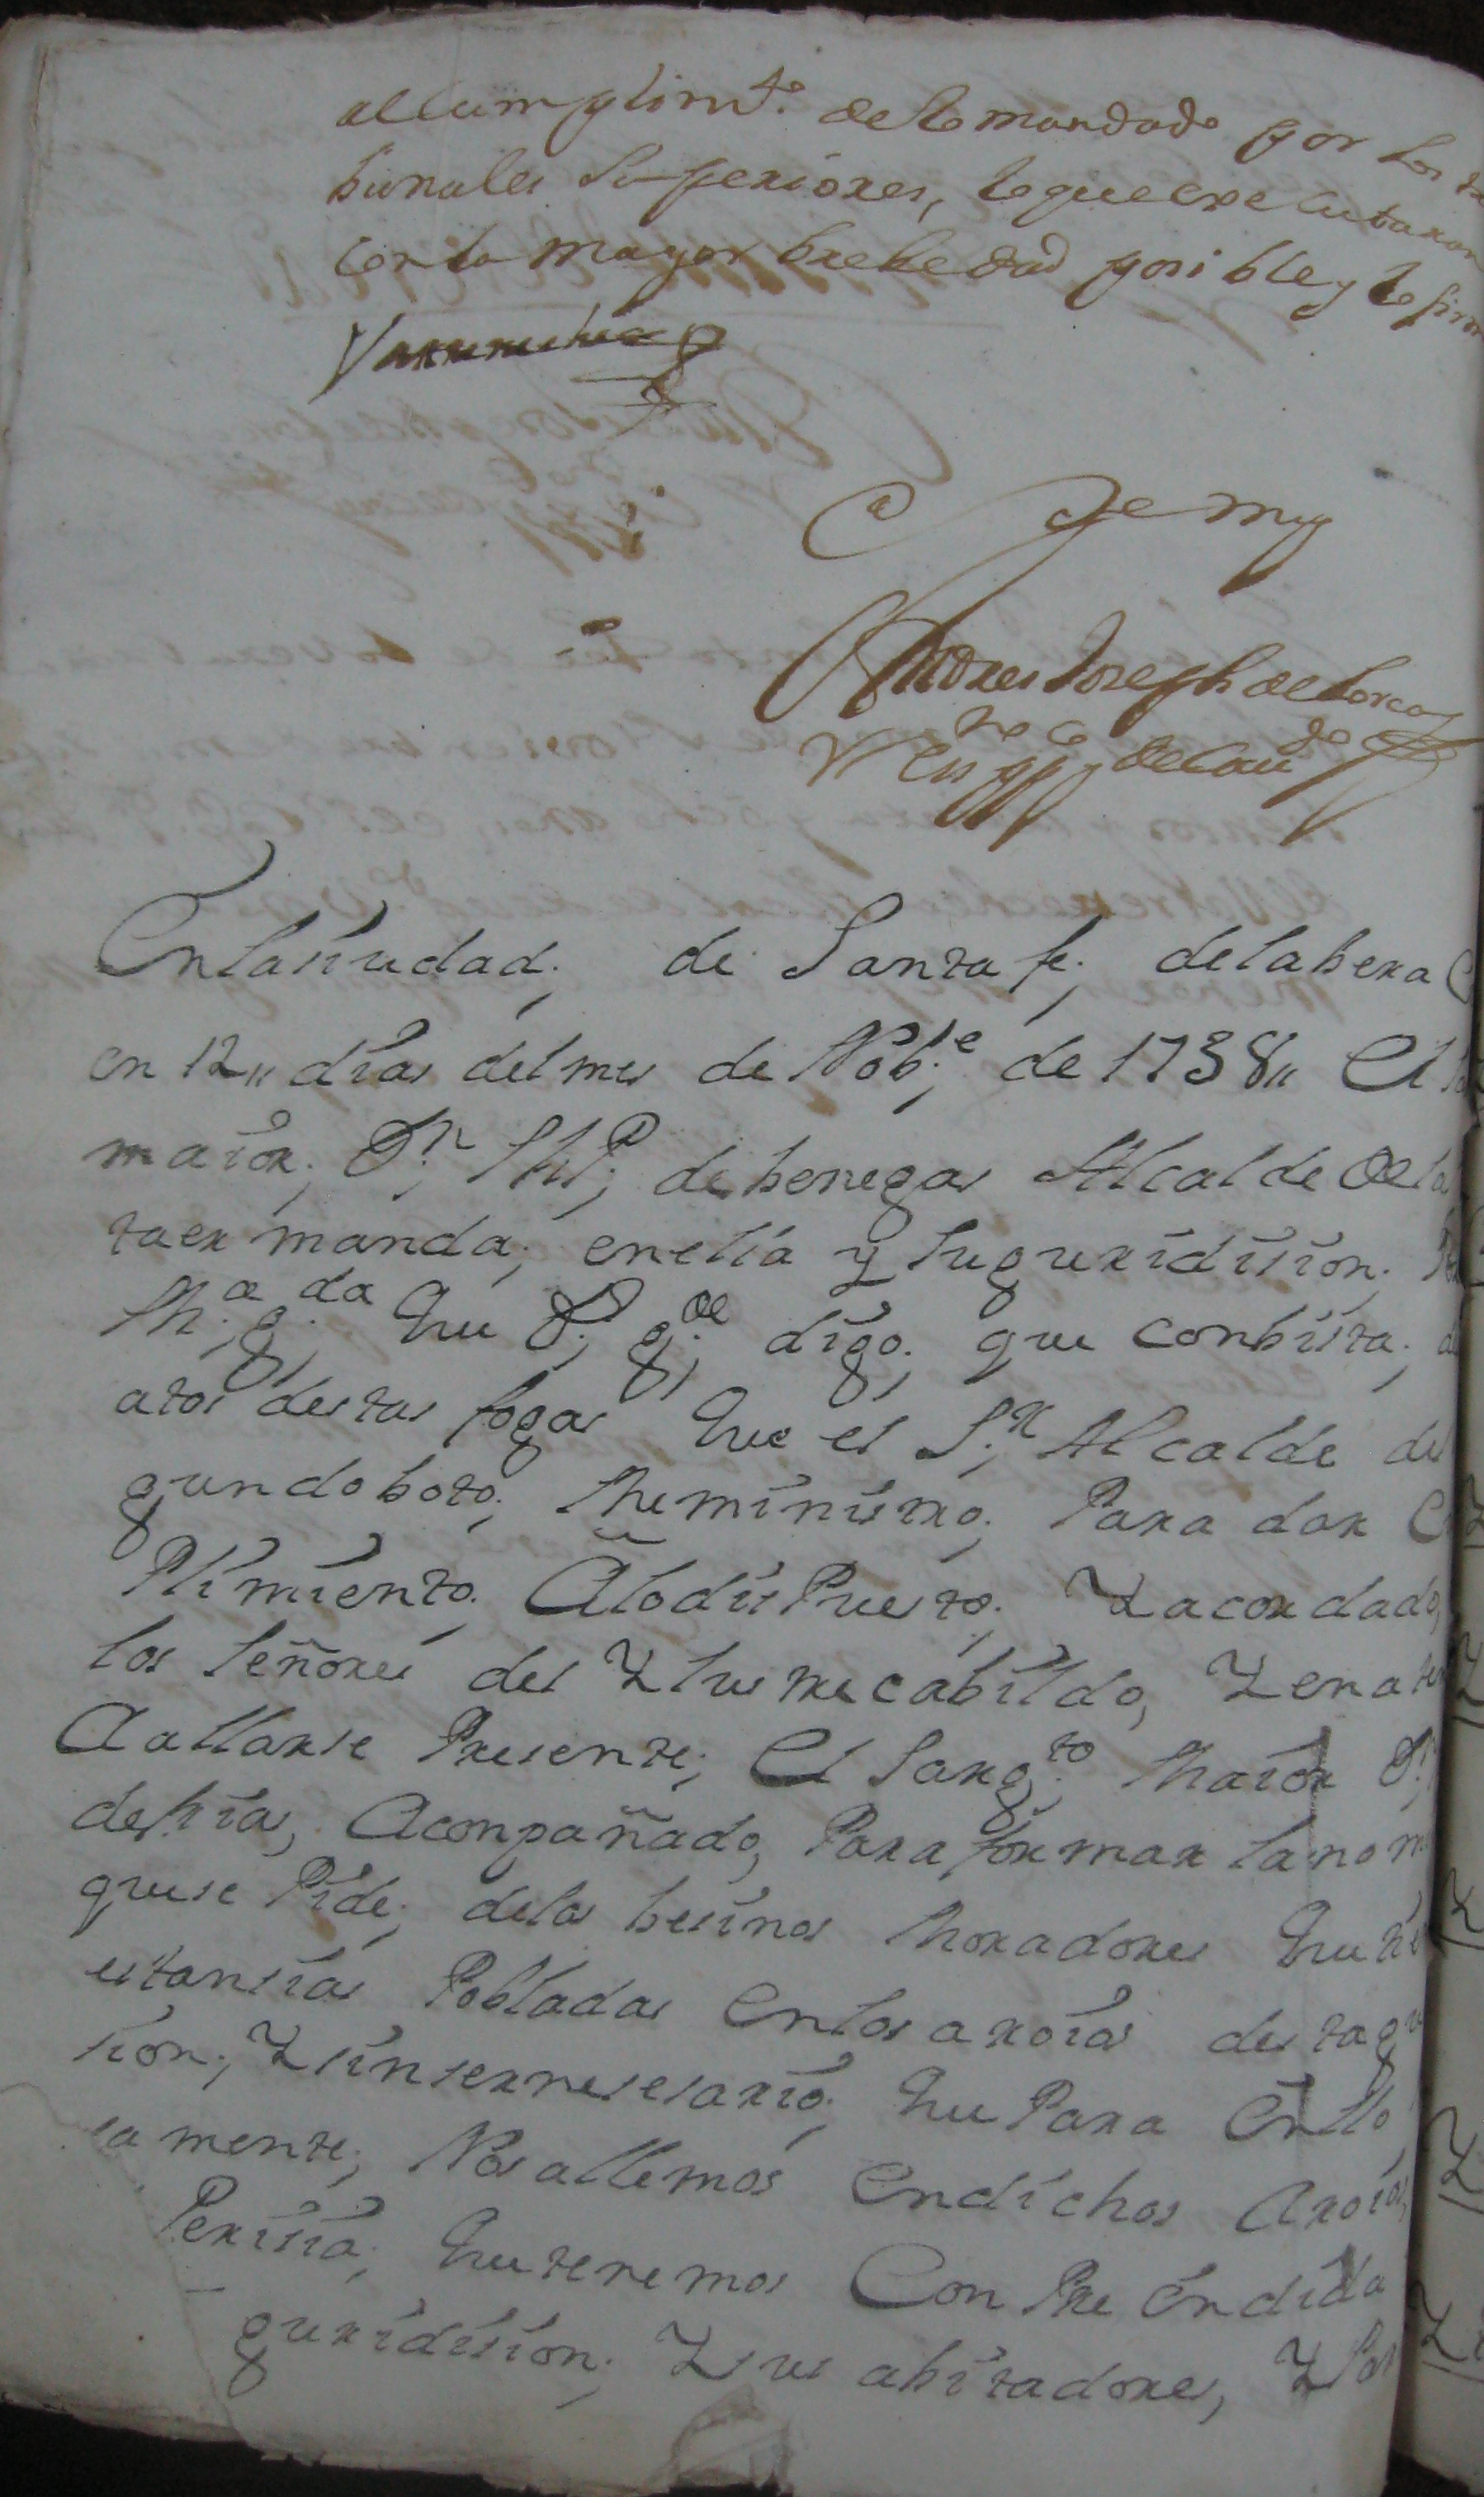 al cumplim.to de lo mandado por los
bunales Superiores, lo que executaran
con la mayor brebedad posible y lo firm
Ante my
Andres Joseph de Lorca
de Cav.do
En la siudad, de Santa fe, de la bera C
en 12,, dias del mes de Nob.e de 1738,, El
maior, D.n de benegas Alcalde de la
ta ermanda, en ella y su guridision,
que D. g.de digo, que con bista, d
atos destas fogas que el S.r Alcalde de
gundo boto, Para dar C
Plimiento, A lo dis Puesto, Y acordado,
los señores del Y lus tre cabildo, Y en a
A allarse Presente, El Sarg.to Maior D.
de frias, Aconpañado, Para formar la no m
que se Pide, de los besinos Moradores que
estansias Pobladas En los aroios des ta gu
sion, Y sin ser nesesario, que Para Ello
sa mente, Nos allemos En dichos Aroios,
Perisia, que tenemos Con Pre éndida
guridision, Y sus abitadores, Y Par